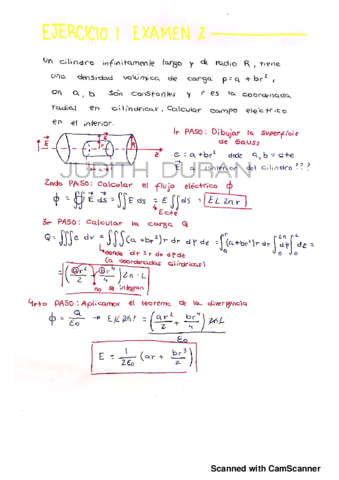 EJERCICIO 1 EXAMEN 2
Un cilindro infinitamente largo y de radio R, tiene
una densidad volúmica de carga ρ=a+br²,
on a, b són constantes y r es la coordenada
radial en cilíndricas. Calcular campo eléctrico
en el interior.
1r PASO: Dibujar la superfície
de Gauss
E
R
r
L
ρ=a+br² dnde a,b=cte
E al interior del cilindro???
JUDITH DURAN
2ndo PASO: Calcular el flujo eléctrico ϕ
ϕ = ∯ E ds = ∬ E ds = E ∬ ds = EL2πr
E cte
3r PASO: Calcular la carga Q
Q = ∭ ρ dv = ∭ (a+br²) r dr dφ dz = ∫₀ʳ (a+br²) r dr ∫₀²π dφ ∫₀ᴸ dz =
donde dv = r dr dφ dz
(a coordenadas cilíndricas)
= (ar²/2 + br⁴/4) 2π·L
no se integran
4rto PASO: Aplicamos el teorema de la divergencia
ϕ = Q/ε₀ → EL2πr = (ar²/2 + br⁴/4) 2πL / ε₀
E = 1/2ε₀ (ar + br³/2)
Scanned with CamScanner